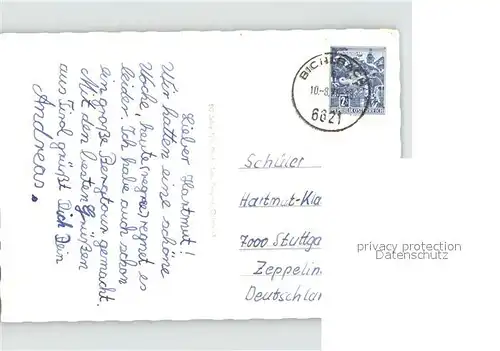 Lieber Hartmut!
Wir hatten eine schöne
Woche, heute (regnet) regnet es
leider. Ich habe auch schon
ein große Bergtour gemacht.
Mit den besten Grüßen
aus Tirol grüßt Dich Dein
Andreas.
BICHLBACH
10.-8.
6621
Schüler
Hartmut-Kla
7000 Stuttga
Zeppelin
Deutschlan
privacy protection
Datenschutz